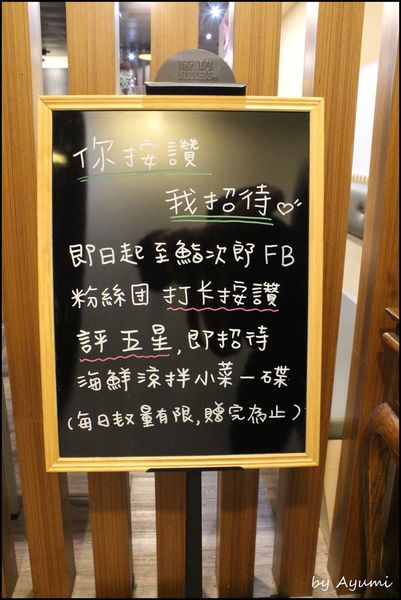 成功
SUCCESS
你按讚
我招待♡
即日起至鮨次郎 FB
粉絲団 打卡按讚
評五星, 即招待
海鮮涼拌小菜一碟
(每日数量有限, 贈完為止)
by Ayumi